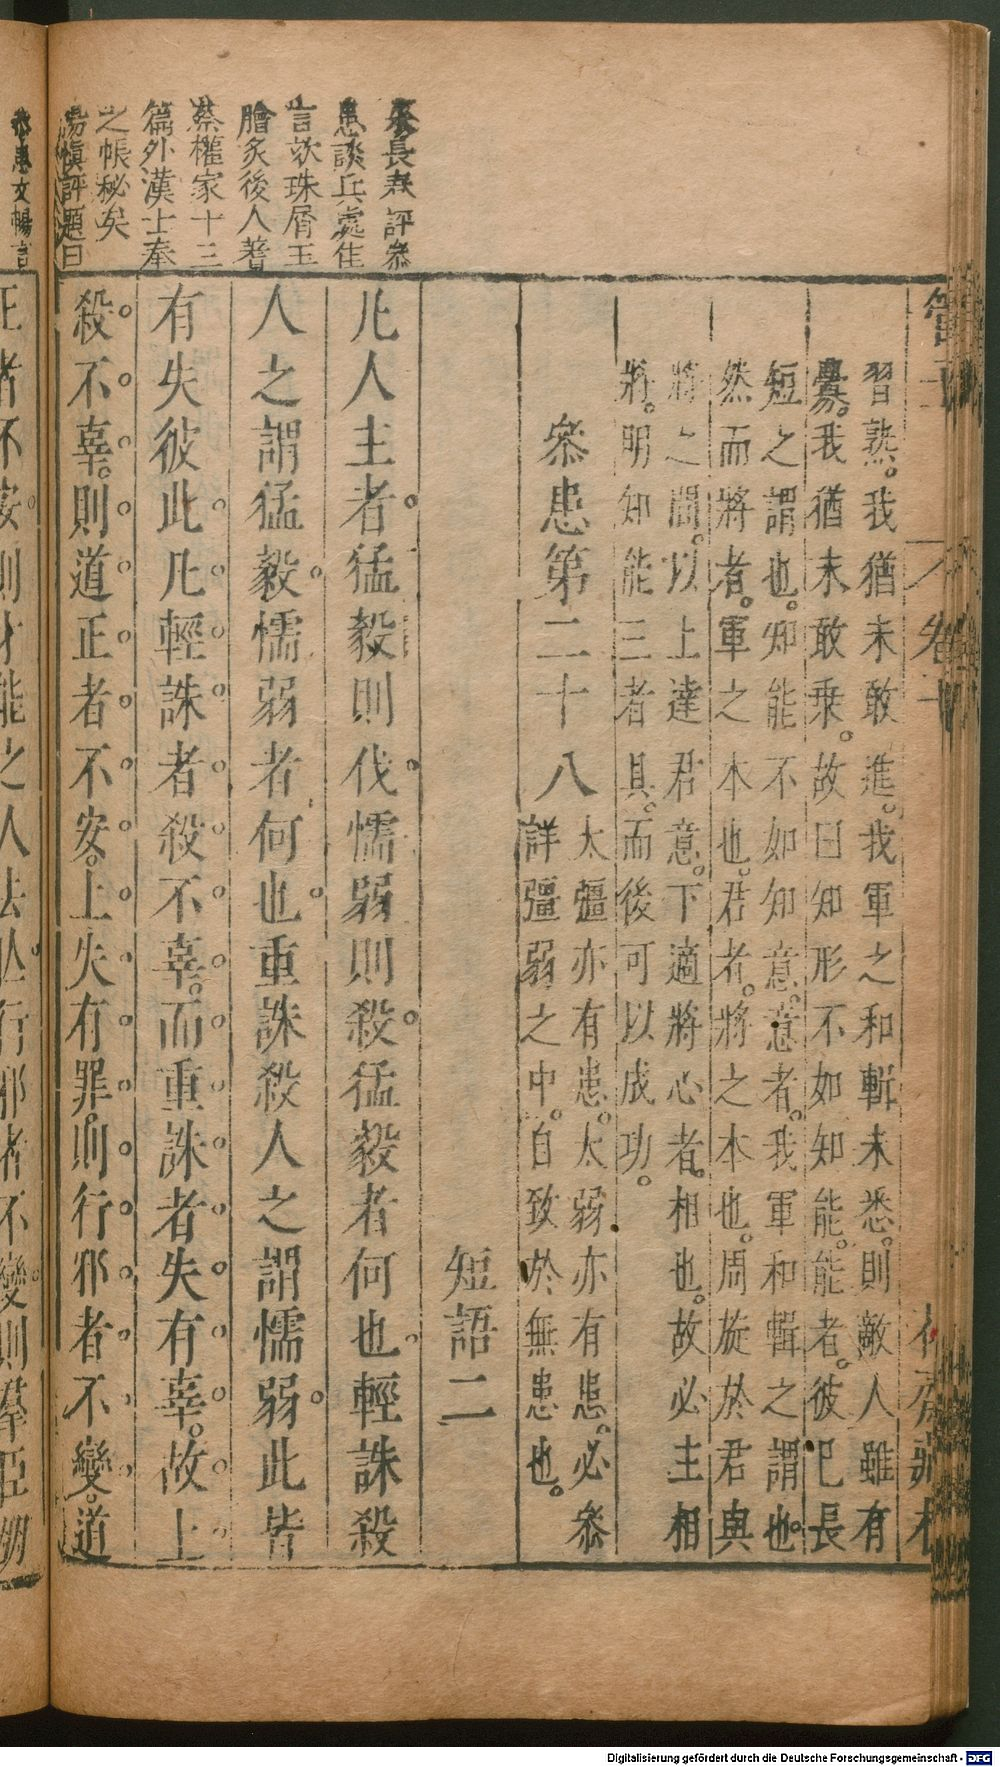 管子
卷十
花齋藏本
習熟。我猶未敢進。我軍之和輯未悉。則敵人雖有
釁。我猶未敢乗。故曰知形不如知能。能者。彼已長
短之謂也。知能不如知意。意者。我軍和輯之謂也。
然而將者。軍之本也。君者。將之本也。周旋於君與
將之間。以上達君意。下適將心者。相也。故必主相
將。明知能三者具。而後可以成功。
叅患第二十八
太彊亦有患。太弱亦有患。必叅
詳彊弱之中。自致於無患也。
短語二
朱長春評叅
患談兵處隹
言欬珠屑玉
膾炙後人著
蔡權家十三
篇外漢士奉
之帳秘矣
楊慎評題曰
凡人主者。猛毅則伐。懦弱則殺。猛毅者何也。輕誅殺
人之謂猛毅。懦弱者何也。重誅殺人之謂懦弱。此皆
有失彼此。凡輕誅者殺不辜。而重誅者失有辜。故上
殺不辜。則道正者不安。上失有罪。則行邪者不變。道
叅患文暢言
正者不安。則才能之人去亾。行邪者不變。則羣臣朋
Digitalisierung gefördert durch die Deutsche Forschungsgemeinschaft - DFG